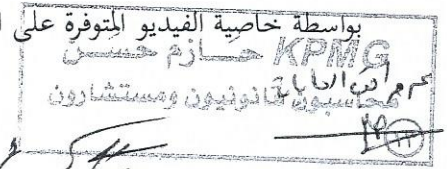 بواسطة خاصية الفيديو المتوفرة على
KPMG حـــازم حســـن
محاسبون قانونيون ومستشارون